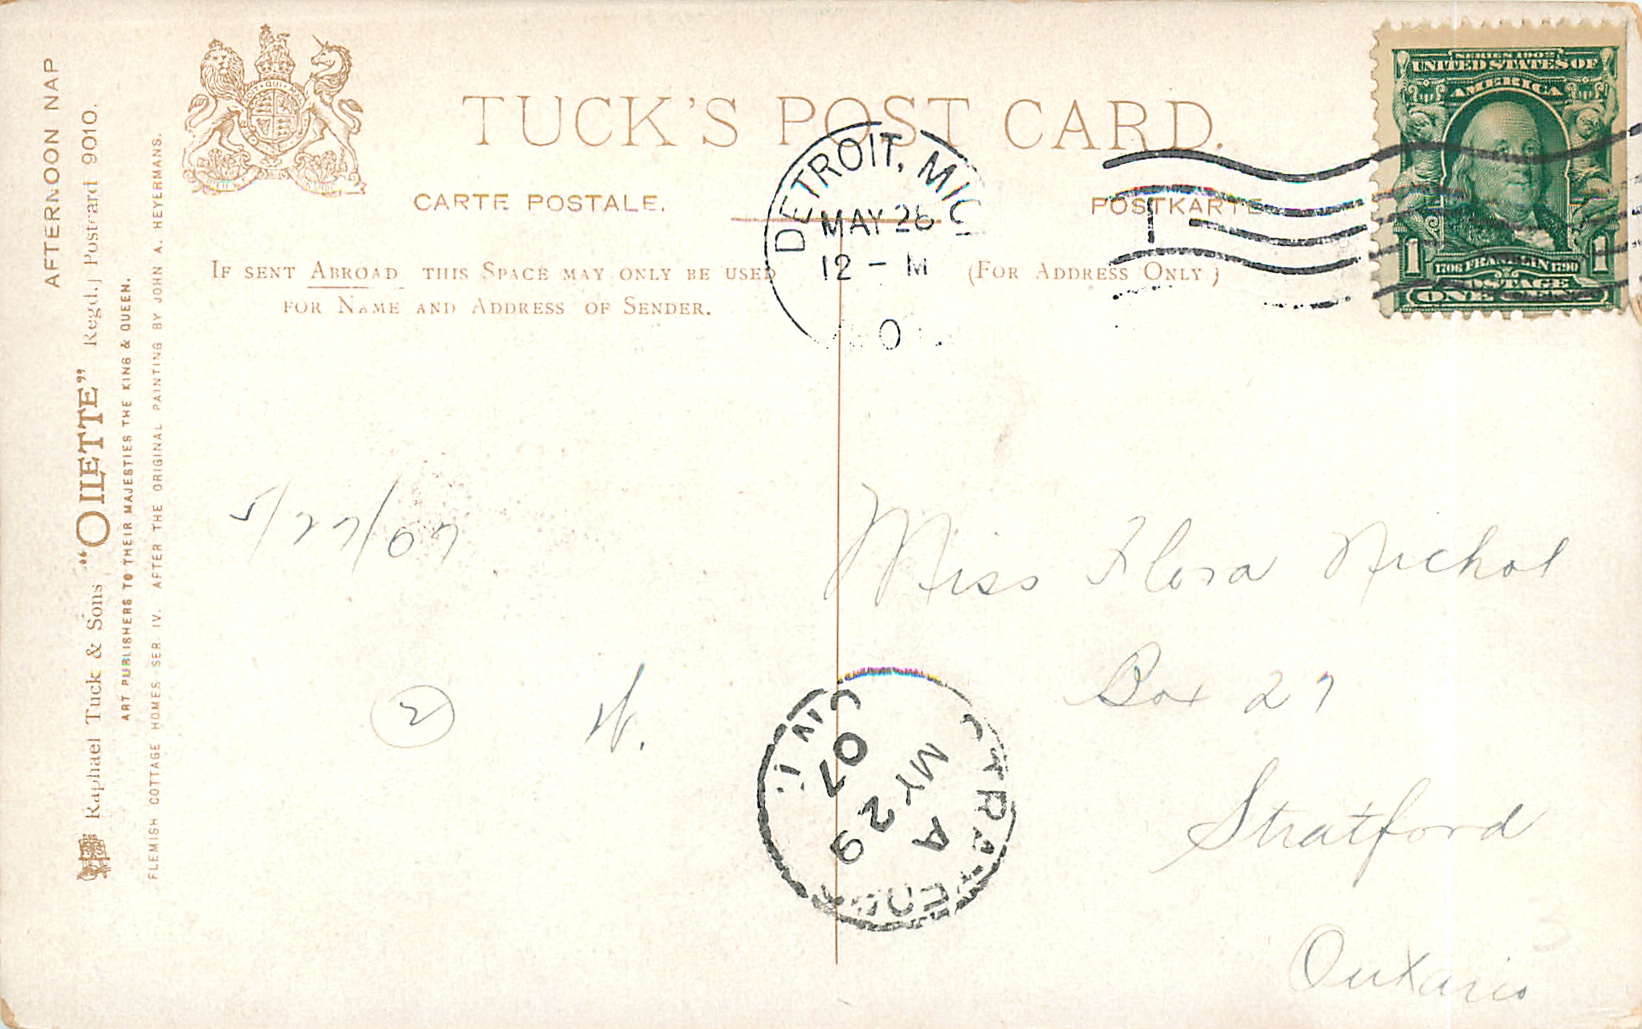 AFTERNOON NAP
Raphael Tuck & Sons "OILETTE" Regd. Postcard 9010.
ART PUBLISHERS TO THEIR MAJESTIES THE KING & QUEEN.
FLEMISH COTTAGE HOMES SER. IV. AFTER THE ORIGINAL PAINTING BY JOHN A. HEYERMANS.
TUCK'S POST CARD.
CARTE POSTALE.
POSTKARTE
IF SENT ABROAD THIS SPACE MAY ONLY BE USED
FOR NAME AND ADDRESS OF SENDER.
(FOR ADDRESS ONLY)
DETROIT, MIC
MAY 26
12 - M
0
SERIES 1902
UNITED STATES OF
AMERICA
1 1706 FRANKLIN 1790 1
POSTAGE
ONE CENT
5/27/07
Miss Flora Nichol
Box 27
Stratford
Ontario
2
N.
STRATFORD
A
MY 29
07
ONT.